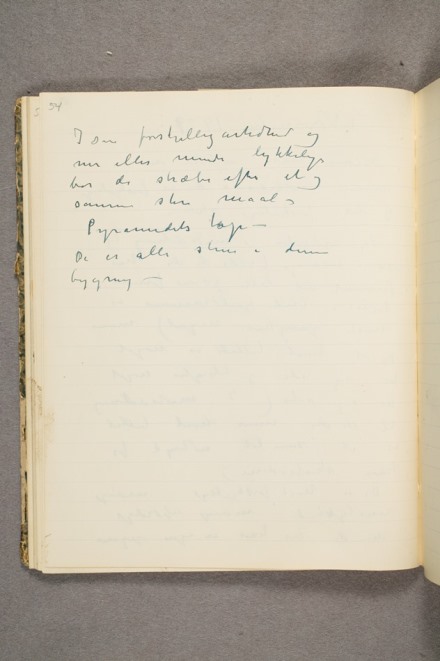 54
I sin forskjelligartethed og
mer eller mindre lykkelige
bør de stræbe efter et og
samme store maal –
Pyramidets top –
De er alle stene i denne
bygning –